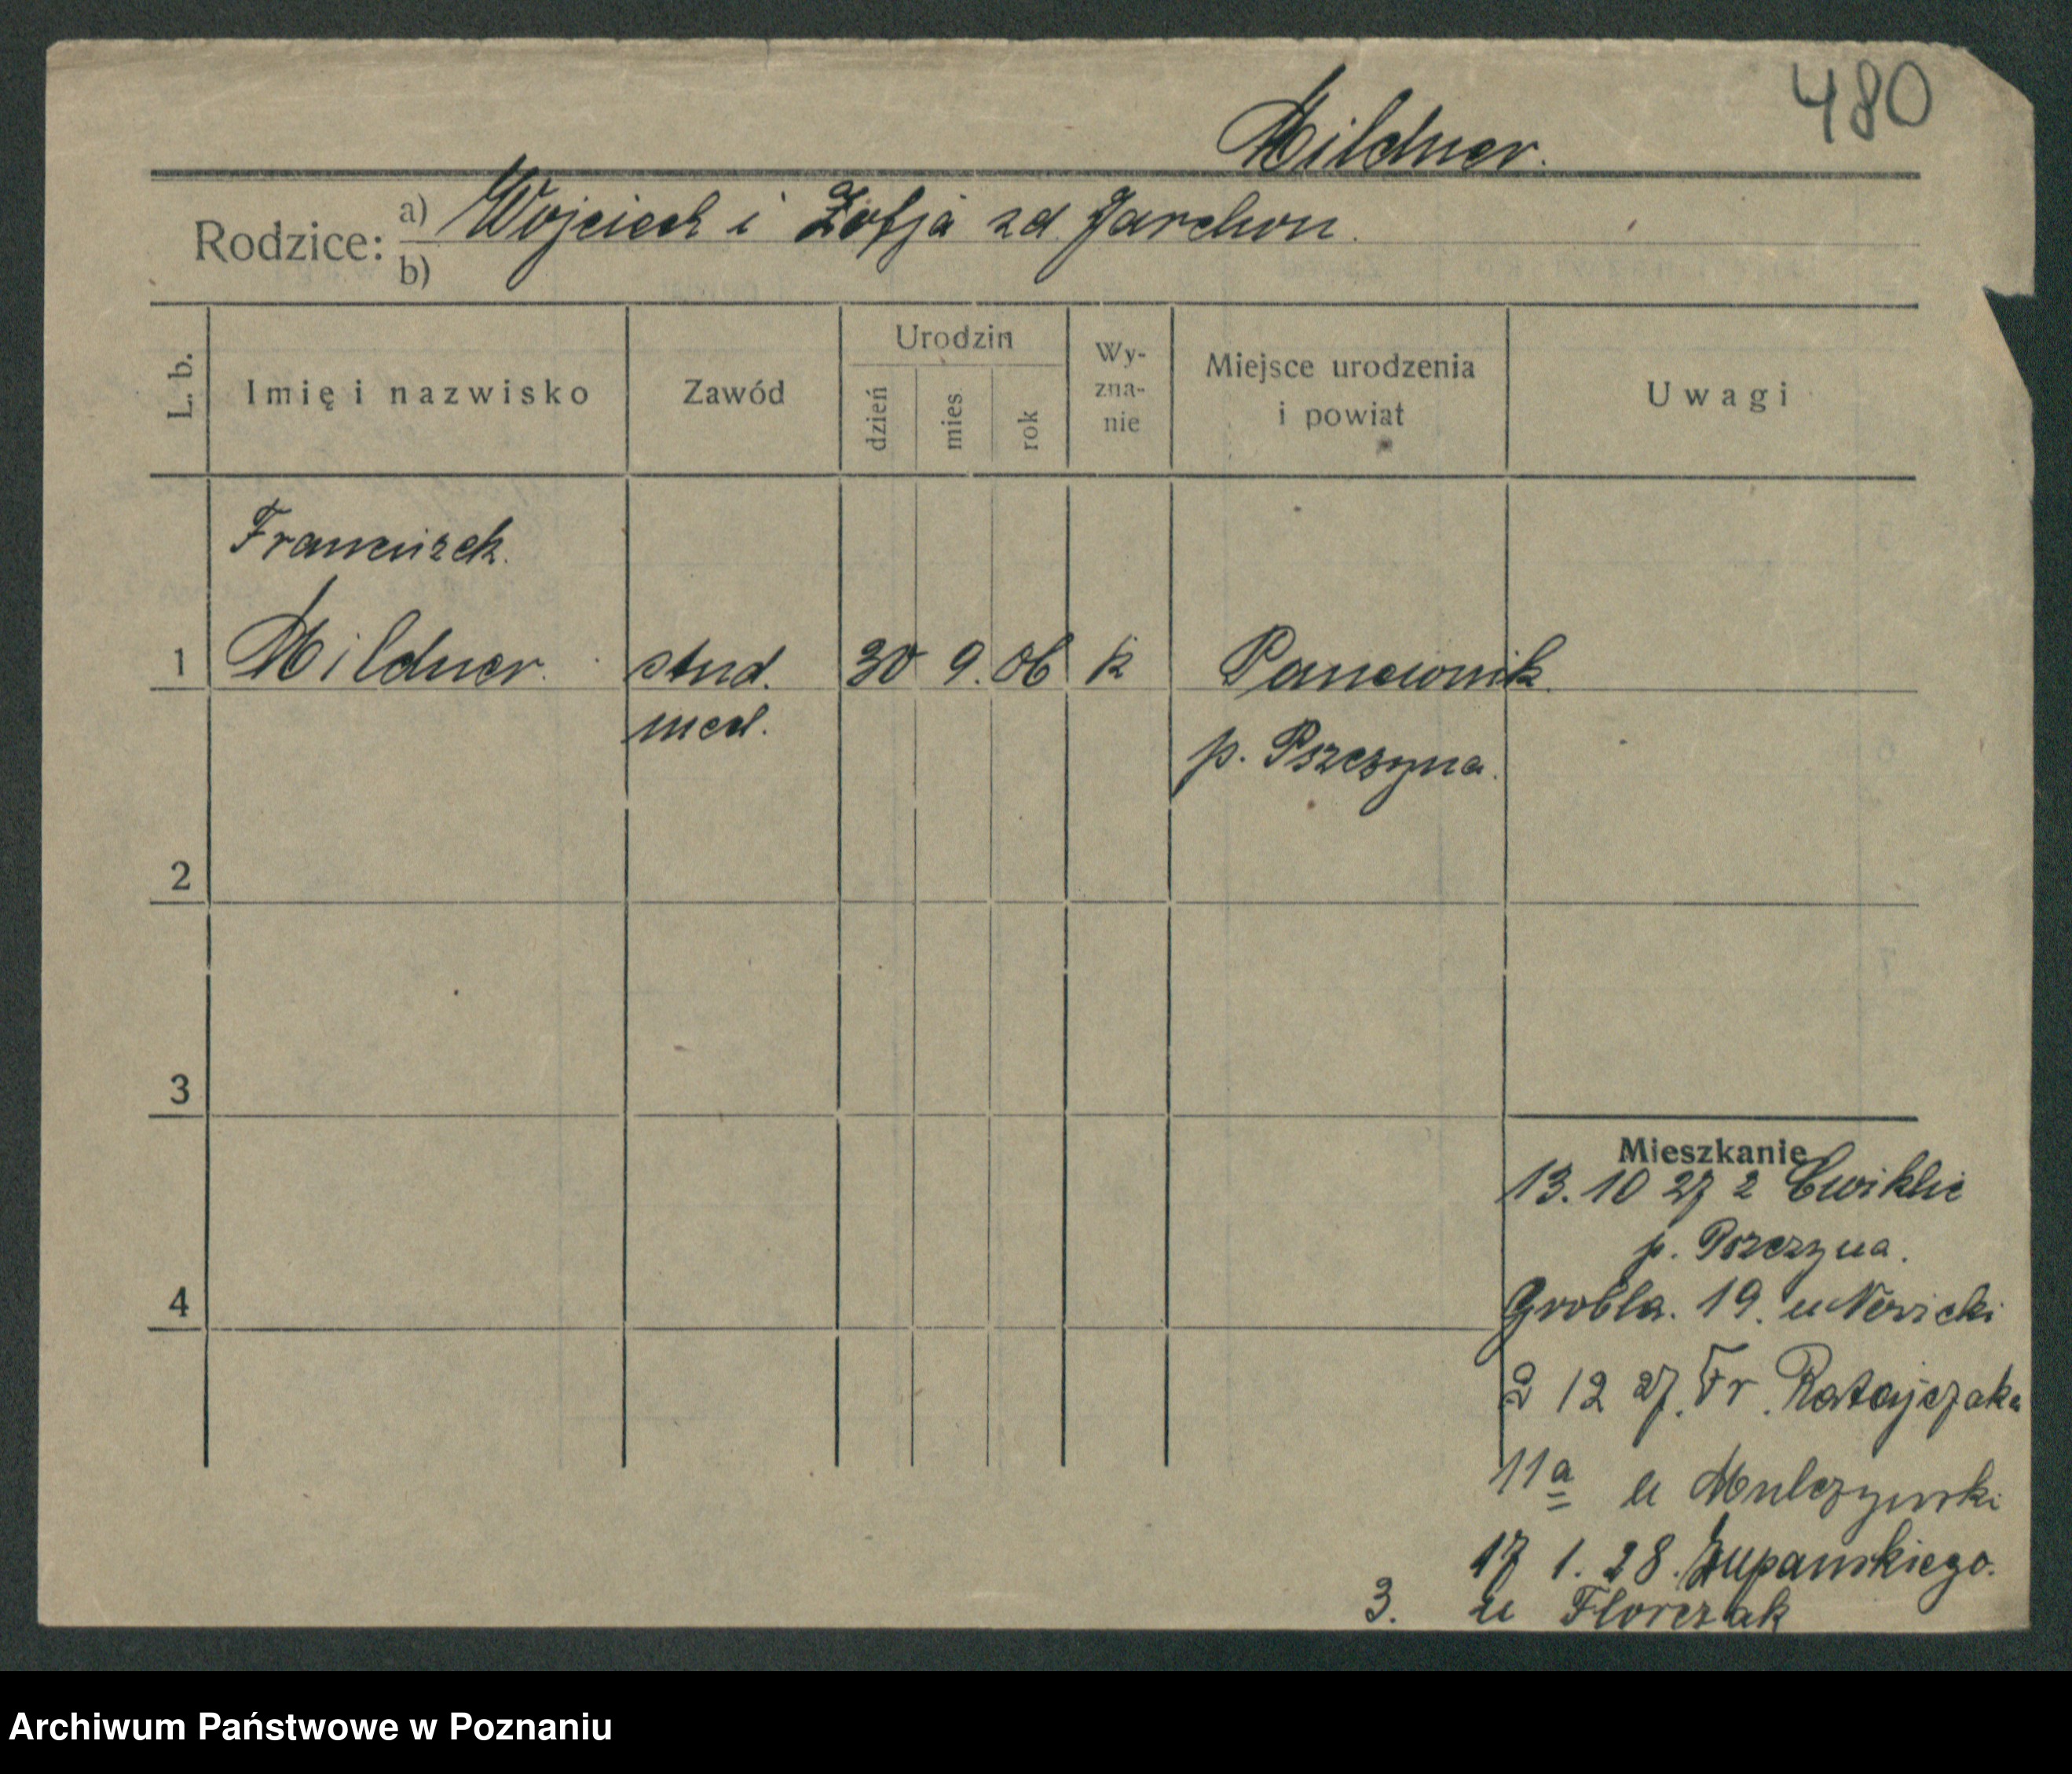 480
Mildner.
Rodzice: a) Wojciech i Zofja zd Jarchon.
b)
L. b.
Imię i nazwisko
Zawód
Urodzin
dzień
mies
rok
Wy-
zna-
nie
Miejsce urodzenia
i powiat
Uwagi
Franciszek.
1 Mildner. stud. 30 9. 06 k Panewnik.
med.
p. Pszczyna.
2
3
Mieszkanie
13. 10 27 z Ćwiklic
p. Pszczyna.
4
Grobla. 19. u Nowicki
2 12 27. Fr. Ratajczaka
11a u Mulczynski
17 1. 28. Żupanskiego.
3. u Florczak
Archiwum Państwowe w Poznaniu